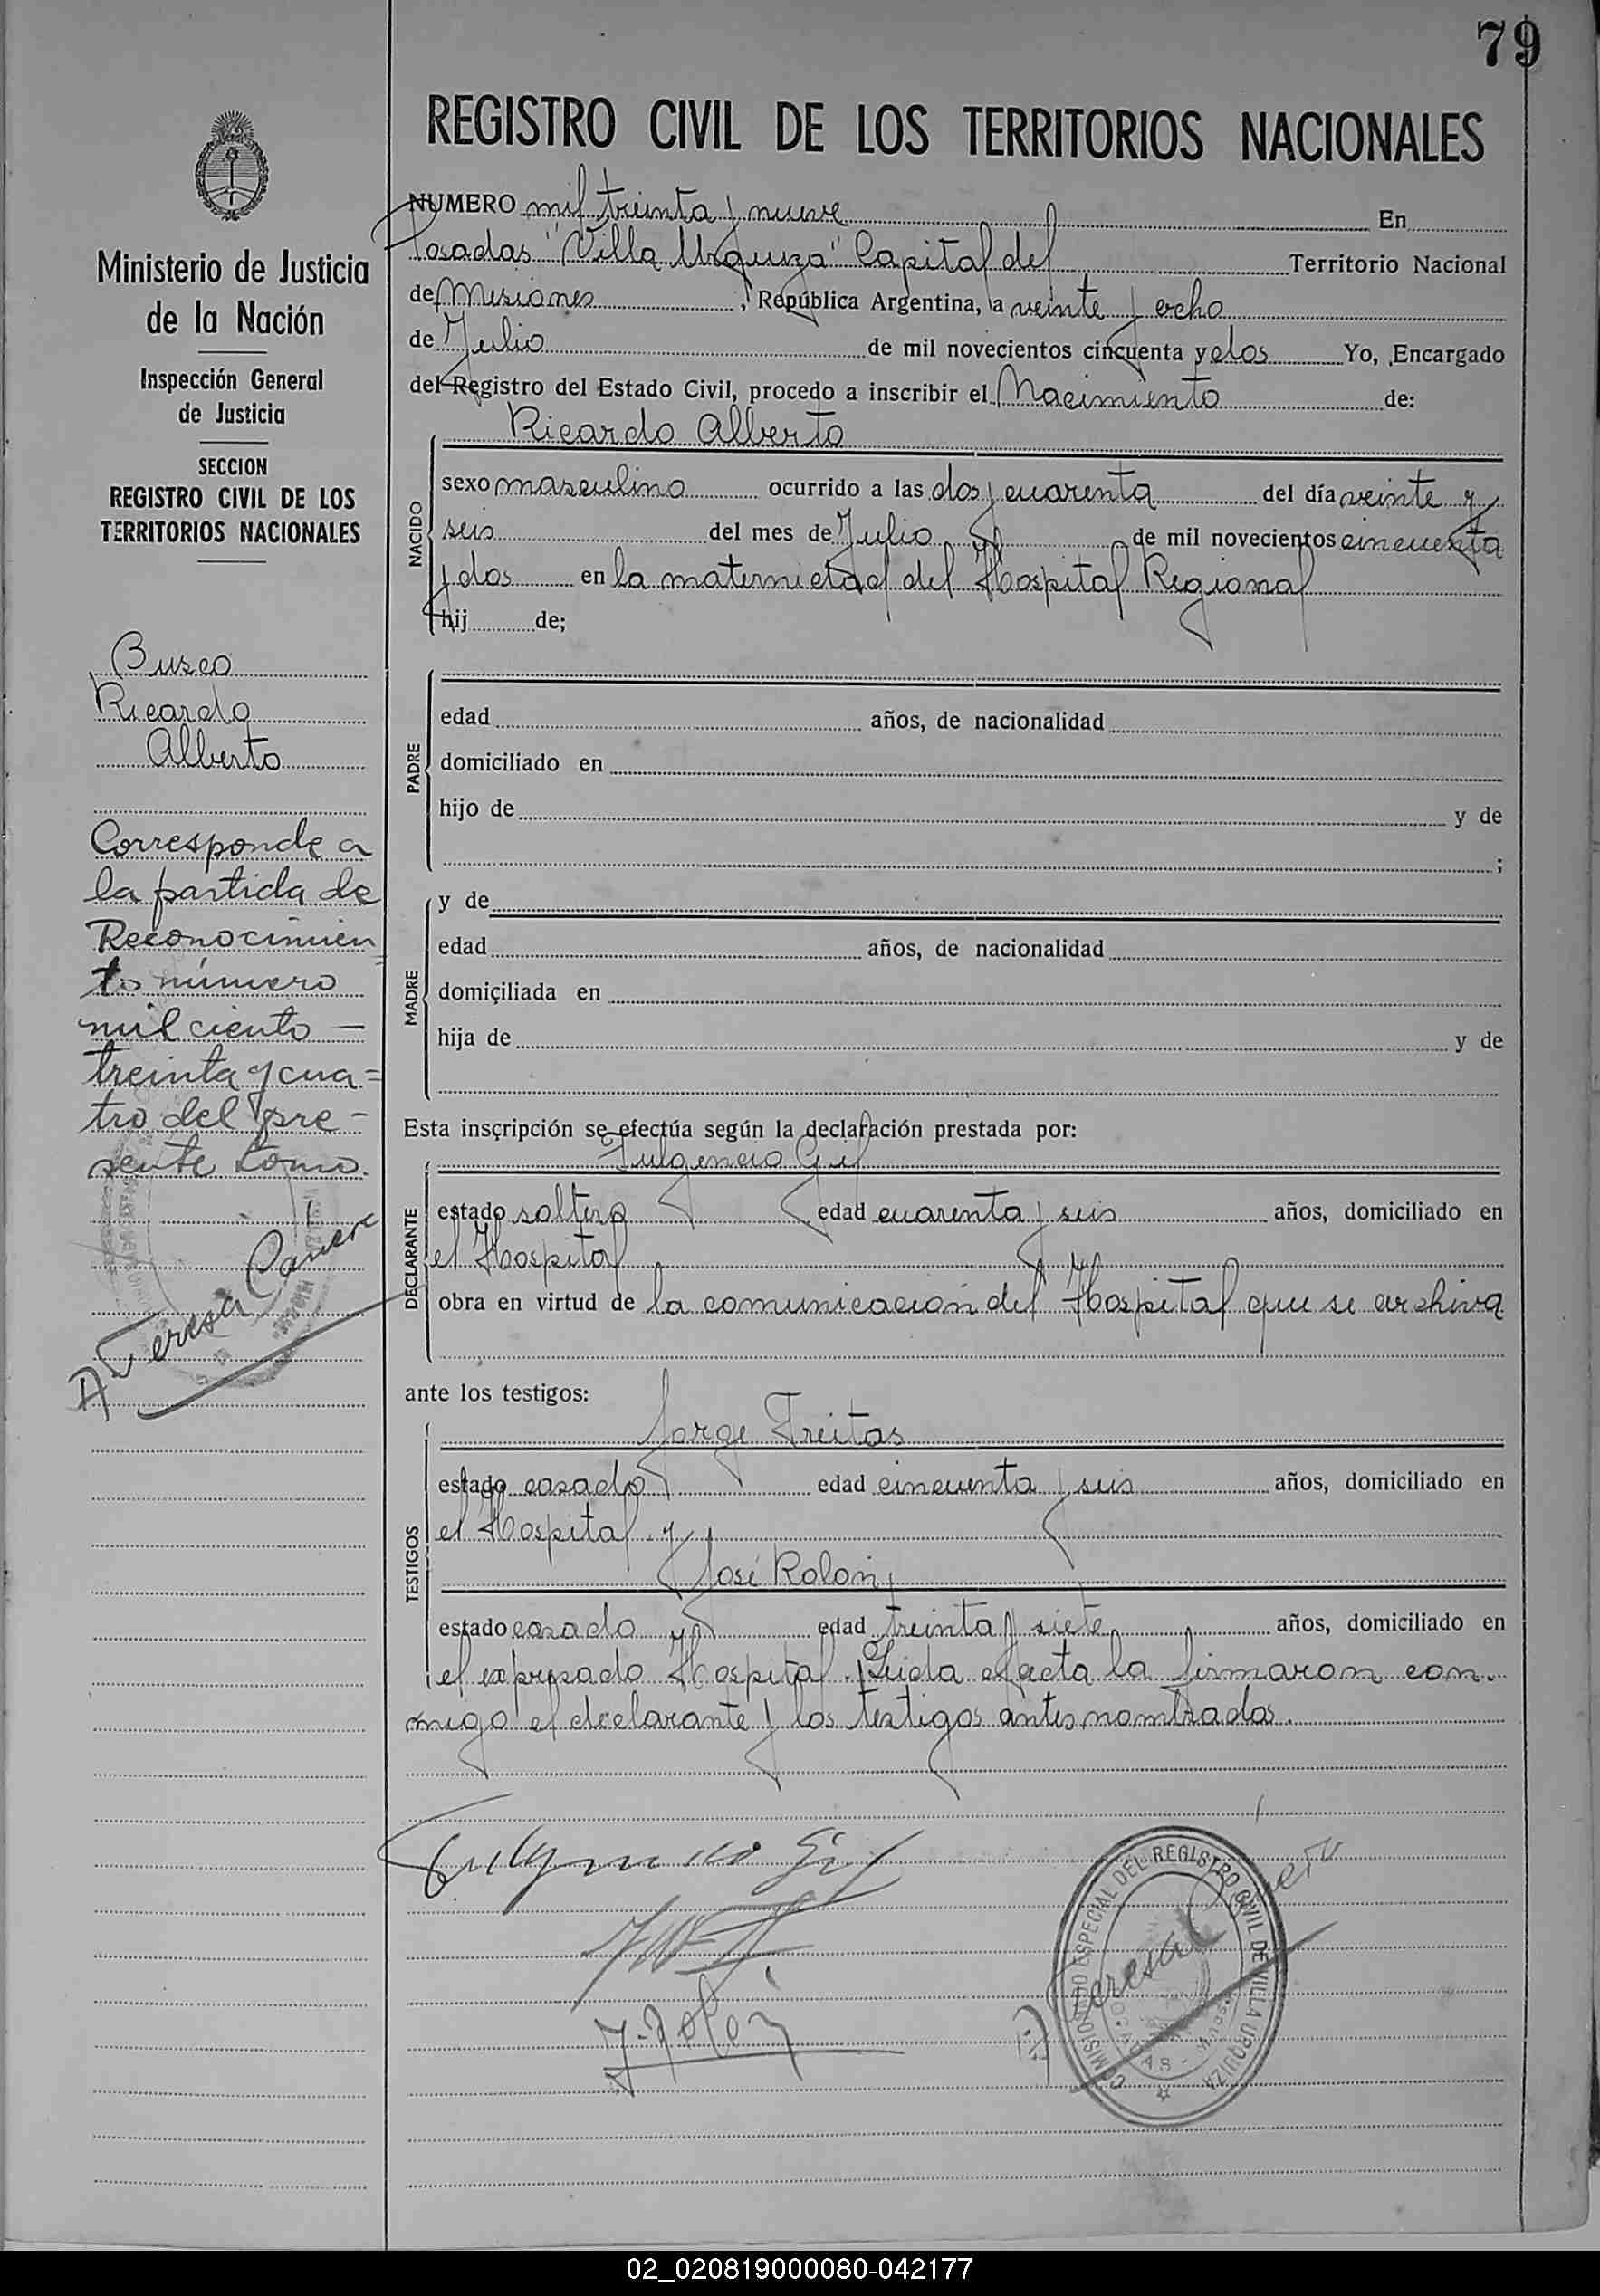 79
REGISTRO CIVIL DE LOS TERRITORIOS NACIONALES
Ministerio de Justicia
de la Nación
Inspección General
de Justicia
SECCION
REGISTRO CIVIL DE LOS
TERRITORIOS NACIONALES
Busco
Ricardo
Alberto
Corresponde a
la partida de
Reconocimien
to número
mil ciento —
treinta y cua=
tro del pre-
sente tomo.
A Teresa Canero
NUMERO mil treinta y nueve En
Posadas "Villa Urquiza" Capital del Territorio Nacional
de Misiones, República Argentina, a veinte y ocho
de Julio de mil novecientos cincuenta y dos Yo, Encargado
del Registro del Estado Civil, procedo a inscribir el Nacimiento de:
Ricardo Alberto
NACIDO
sexo masculino ocurrido a las dos y cuarenta del día veinte y
seis del mes de Julio de mil novecientos cincuenta
y dos en la maternidad del Hospital Regional
hij de;
PADRE
edad años, de nacionalidad
domiciliado en
hijo de y de
;
MADRE
y de
edad años, de nacionalidad
domiciliada en
hija de y de
Esta inscripción se efectúa según la declaración prestada por:
Fulgencio Gil
DECLARANTE
estado soltero edad cuarenta y seis años, domiciliado en
el Hospital
obra en virtud de la comunicación del Hospital que se archiva
ante los testigos:
Jorge Freitas
TESTIGOS
estado casado edad cincuenta y seis años, domiciliado en
el Hospital y
José Rolon,
estado casado edad treinta y siete años, domiciliado en
el expresado Hospital. Leida el acta la firmaron con-
migo el declarante y los testigos antes nombrados.
Fulgencio Gil
J. Rolon
A Teresa Canero
COMISIONADO ESPECIAL DEL REGISTRO CIVIL DE VILLA URQUIZA
02_020819000080-042177